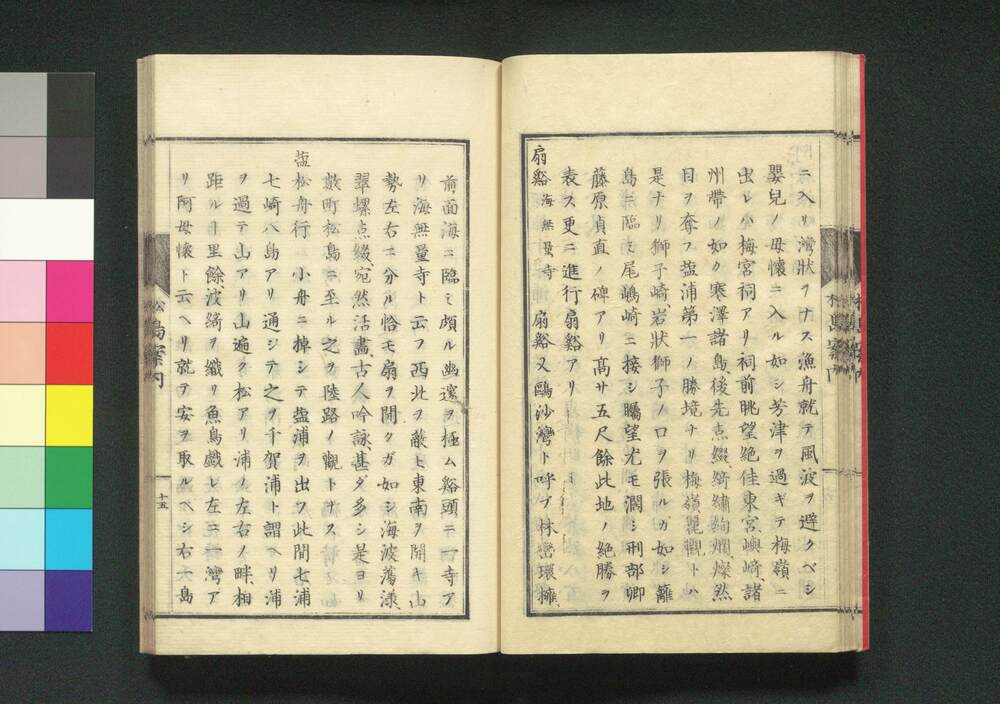 ニ入リ灣狀ヲナス漁舟就テ風波ヲ避クベシ
嬰兒ノ母懷ニ入ル如シ芳津ヲ過ギテ梅嶺ニ
出レ小梅宮祠アリ祠前眺望絶佳東宮嶼﨑、諸
州帶ノ如ク寒澤諸島後先点綴、綺繡絢爛、燦然
目ヲ奪フ盐浦第一ノ勝境ナリ梅嶺觀トハ
是ナリ獅子崎、岩狀獅子ノ口ヲ張ルガ如シ籬
島ニ臨ミ尾嶋崎ニ接シ矚望尤モ濶シ刑部卿
藤原貞直ノ碑アリ高サ五尺餘此地ノ絶勝ヲ
表ス更ニ進行扇谿アリ
扇谿 海無量寺 扇谿又鷗沙灣ト呼ブ林巒環擁、
前面海ニ臨ミ頗ル幽邃ヲ極ム谿頭ニ一寺ア
リ海無量寺ト云フ西北ヲ蔽ヒ東南ヲ開キ山
勢左右ニ分ル恰モ扇ヲ開クガ如シ海波蕩漾、
翠螺点綴、宛然活畵、古人吟詠、甚ダ多シ是ヨリ
數町松島ニ至ル之ヲ陸路ノ觀トナス
盐松舟行 小舟ニ掉シテ盐浦ヲ出ツ此間七浦
七崎八島アリ通シテ之ヲ千賀浦ト謂ヘリ浦
ヲ過テ山アリ山遍ク松アリ浦ノ左右ノ畔、相
距ルヿ里餘、波綺ヲ織リ魚鳥戯レ左ニ一灣ア
リ阿母懷ト云ヘリ就テ安ヲ取ルベシ右一島
松島案內
十五